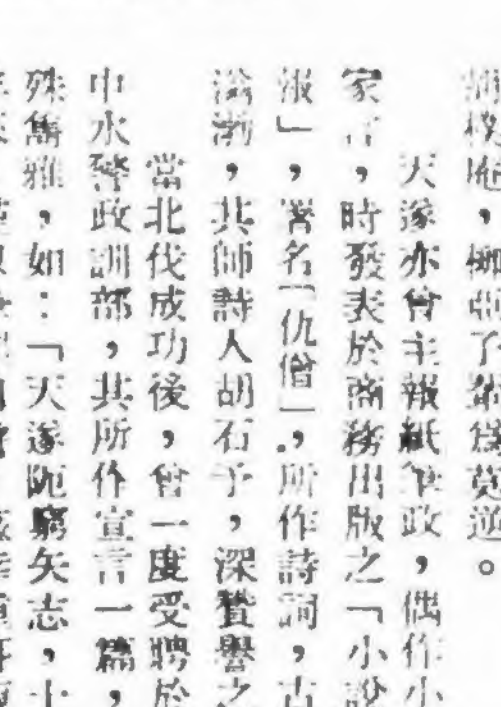 樸庵，柳亞子輩爲莫逆。
天遂亦曾主報紙筆政，偶作小
家言，時發表於商務出版之「小說
報」，署名「仇僧」，所作詩詞，古
淵，其師詩人胡石予，深贊譽之
當北伐成功後，曾一度受聘於
中水警政訓部，其所作宣言一篇，
殊雋雅，如：「天遂阨窮矢志，十